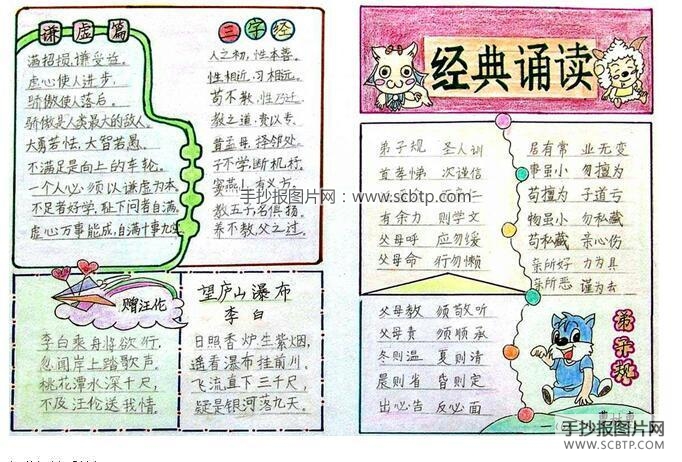 谦虚篇
满招损,谦受益。
虚心使人进步,
骄傲使人落后。
骄傲是人类最大的敌人。
大勇若怯,大智若愚。
不满足是向上的车轮。
一个人心须以谦虚为本。
不足者好学,耻下问者自满。
虚心万事能成,自满十事九空
三字经
人之初,性本善。
性相近,习相远。
苟不教,性乃迁。
教之道,贵以专。
昔孟母,择邻处。
子不学,断机杼。
窦燕山,有义方。
教五子,名俱扬。
养不教,父之过。
赠汪伦
李白乘舟将欲行,
忽闻岸上踏歌声。
桃花潭水深千尺,
不及汪伦送我情。
望庐山瀑布
李白
日照香炉生紫烟,
遥看瀑布挂前川。
飞流直下三千尺,
疑是银河落九天。
经典诵读
弟子规 圣人训
首孝悌 次谨信
有余力 则学文
父母呼 应勿缓
父母命 行勿懒
父母教 须敬听
父母责 须顺承
冬则温 夏则清
晨则省 昏则定
出必告 反必面
居有常 业无变
事虽小 勿擅为
苟擅为 子道亏
物虽小 勿私藏
苟私藏 亲心伤
亲所好 力为具
亲所恶 谨为去
弟子规
手抄报图片网:www.scbtp.com
手抄报图片网
WWW.SCBTP.COM